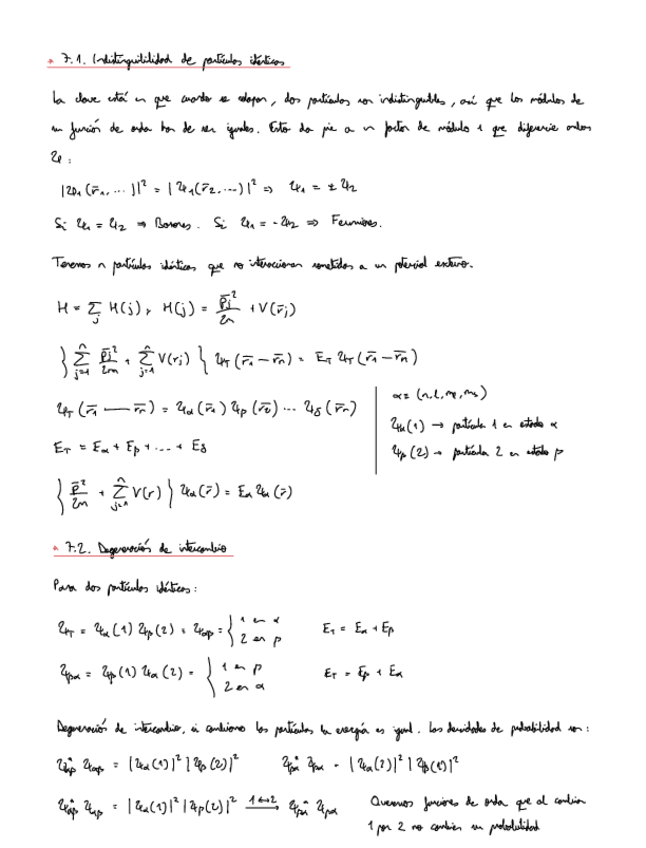 7.1. Indistinguibilidad de partículas idénticas
La clave está en que cuando se solapan, dos partículas son indistinguibles, así que los módulos de
su función de onda han de ser iguales. Esto da pie a un factor de módulo 1 que diferencie ambas
ψ:
|ψ₁(r̄₁, ...)|² = |ψ₁(r̄₂, ...)|² ⇒ ψ₁ = ± ψ₂
Si ψ₁ = ψ₂ ⇒ Bosones. Si ψ₁ = -ψ₂ ⇒ Fermiones.
Tenemos n partículas idénticas que no interaccionan sometidas a un potencial externo.
H = Σ_j H(j), H(j) = p̄_j²/2m + V(r̄_j)
{ Σ_{j=1}^n p̄_j²/2m + Σ_{j=1}^n V(r_j) } ψ_T(r̄₁ — r̄_n) = E_T ψ_T(r̄₁ — r̄_n)
ψ_T(r̄₁ — r̄_n) = ψ_α(r̄₁) ψ_β(r̄₂) ... ψ_δ(r̄_n)
E_T = E_α + E_β + ... + E_δ
α = (n, l, m_l, m_s)
ψ_α(1) → partícula 1 en estado α
ψ_β(2) → partícula 2 en estado β
{ p̄²/2m + Σ_{j=1}^n V(r) } ψ_α(r̄) = E_α ψ_α(r̄)
7.2. Degeneración de intercambio
Para dos partículas idénticas:
ψ_T = ψ_α(1) ψ_β(2) = ψ_αβ = { 1 en α
2 en β
E_T = E_α + E_β
ψ_βα = ψ_β(1) ψ_α(2) = { 1 en β
2 en α
E_T = E_β + E_α
Degeneración de intercambio, si cambiamos las partículas la energía es igual. Las densidades de probabilidad son:
ψ*_αβ ψ_αβ = |ψ_α(1)|² |ψ_β(2)|² ψ*_βα ψ_βα = |ψ_α(2)|² |ψ_β(1)|²
ψ*_αβ ψ_αβ = |ψ_α(1)|² |ψ_β(2)|² 1↔2 → ψ*_βα ψ_βα
Queremos funciones de onda que al cambiar
1 por 2 no cambien su probabilidad